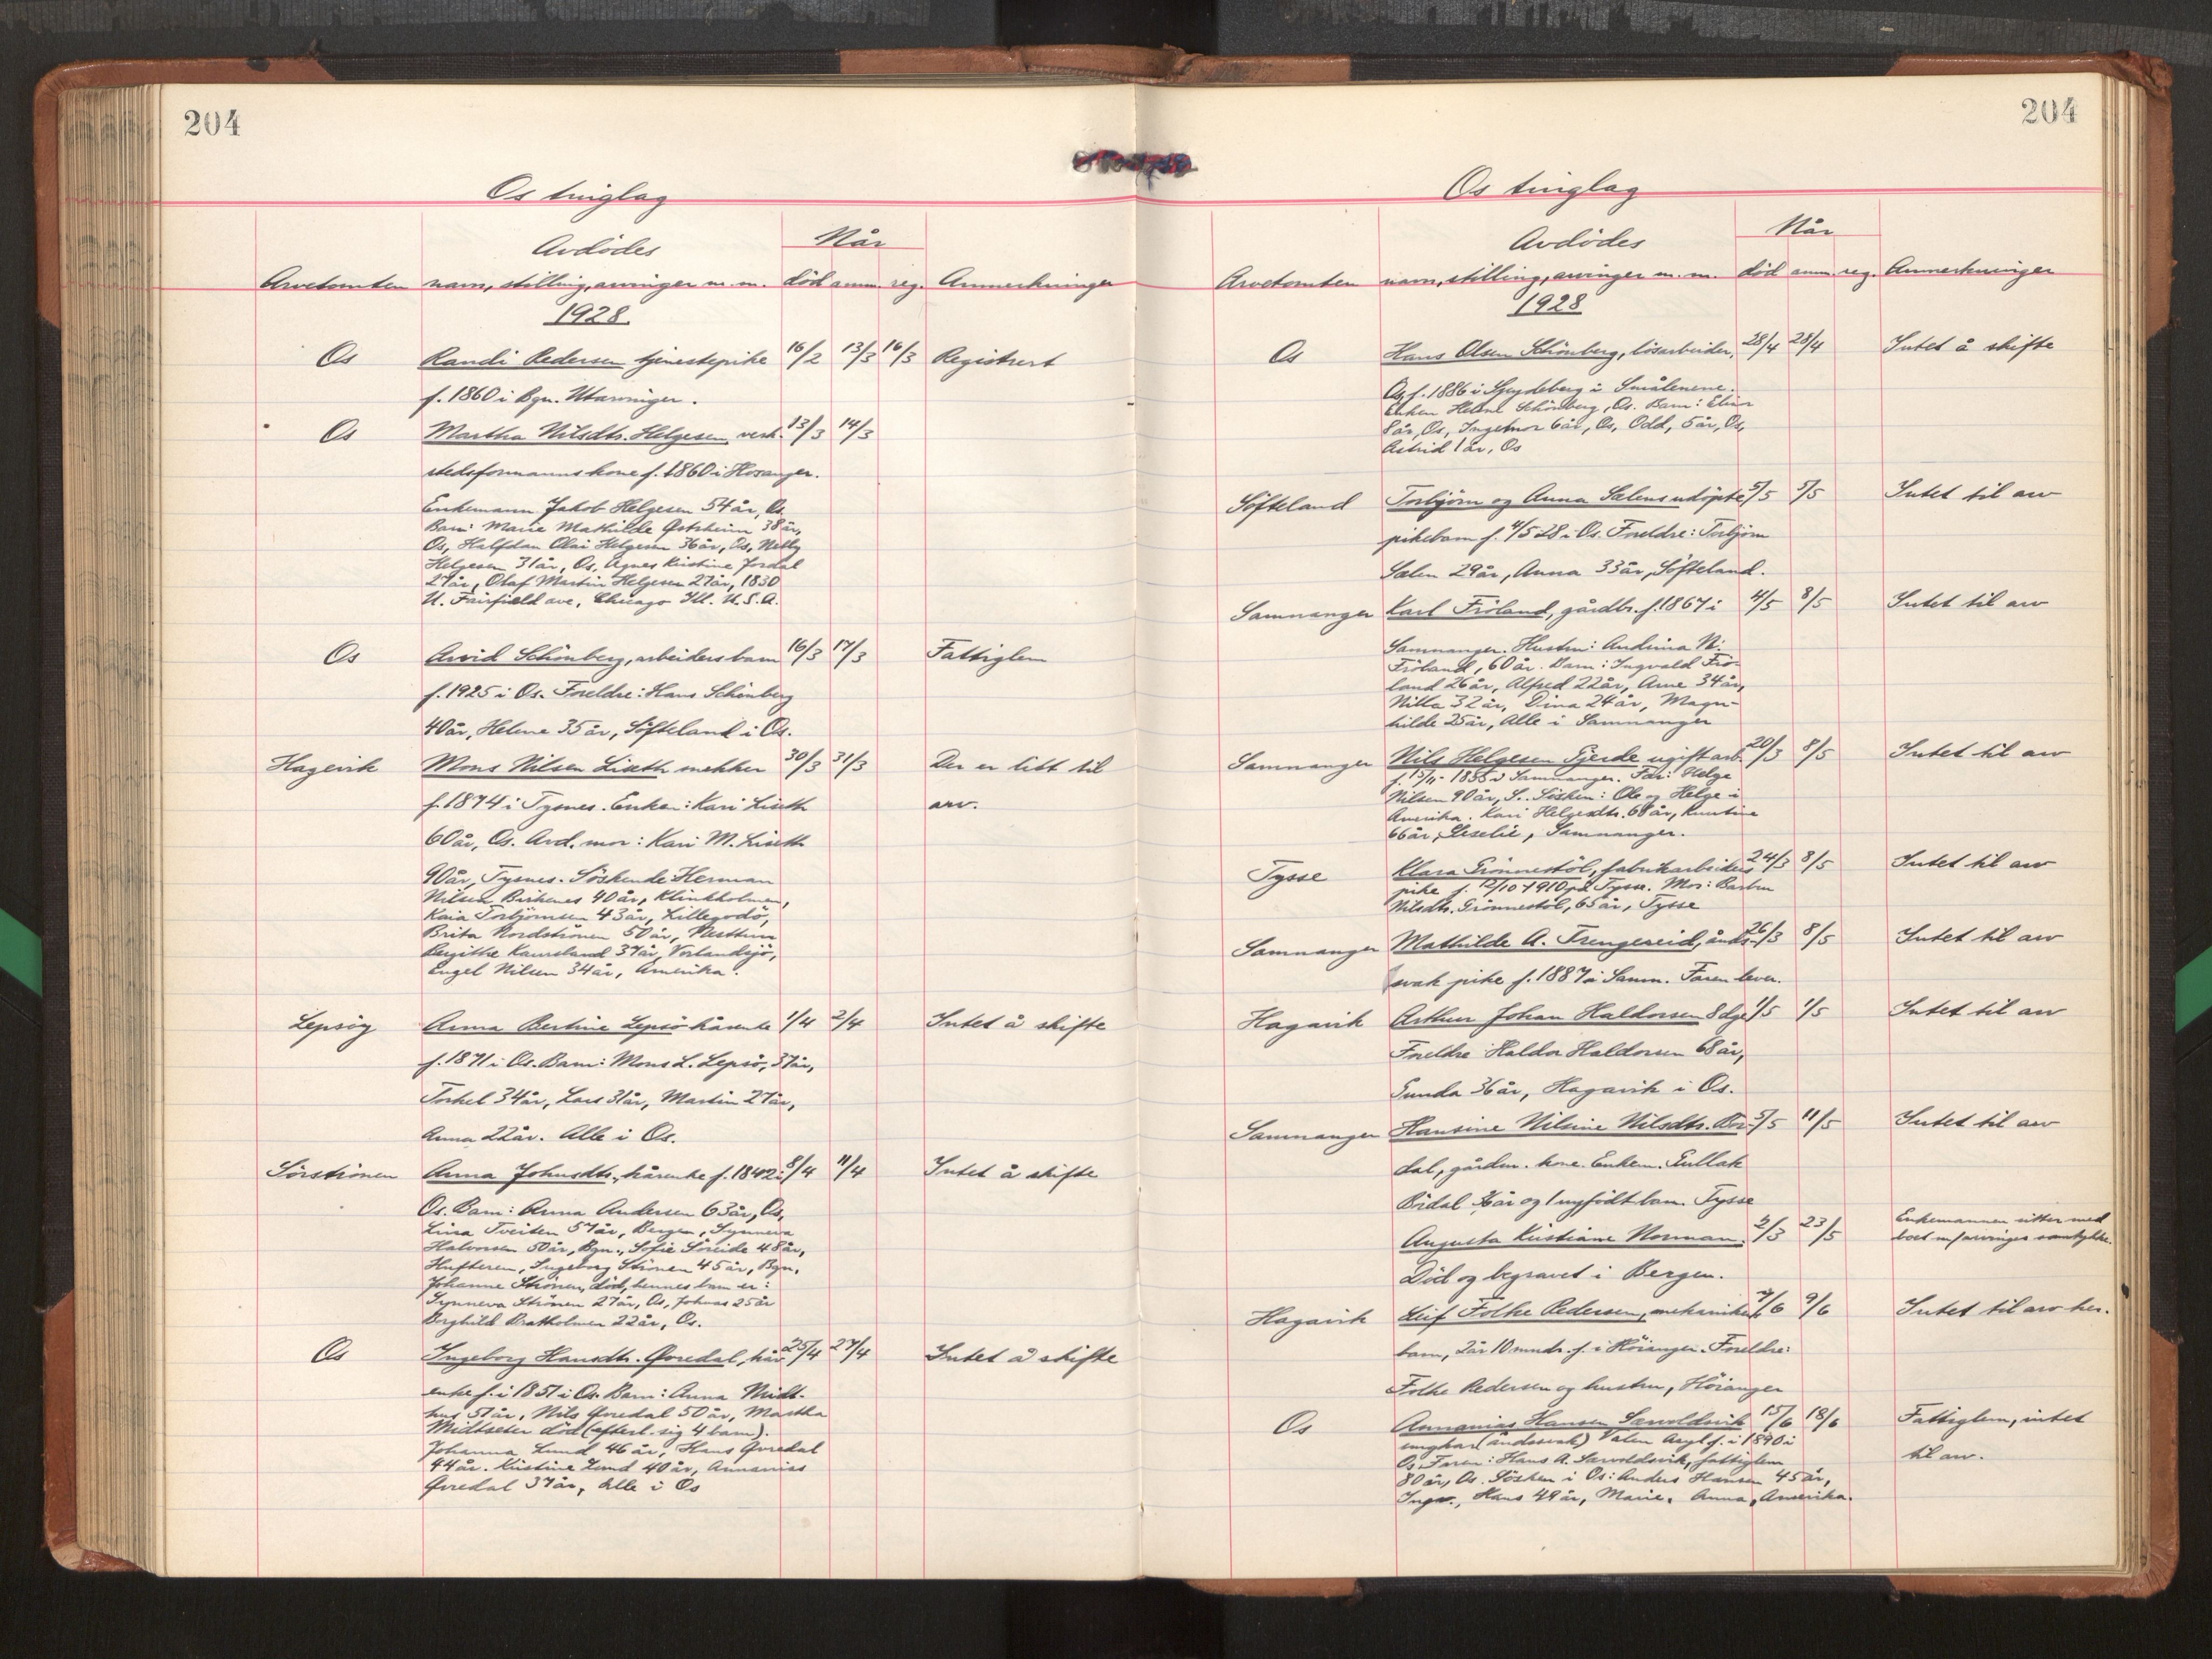 204
Os tinglag
Avdödes
Når
Arvetomten navn, stilling, arvinger m. m. död anm. reg. Anmerkninger
1928.
Os Randi Pedersen tjenestepike 16/2 13/3 16/3 Registrert
f. 1860 i Bgn. Utarvinger.
Os Martha Nilsdtr. Helgesen, verk- 13/3 14/3
stedsformannskone f. 1860 i Hosanger.
Enkemann Jakob Helgesen 54 år, Os.
Barn: Marie Mathilde 38 år,
Os, Halfdan Olai Helgesen 36 år, Os, Nelly
Helgesen 31 år, Os, Agnes Kristine Jordal
27 år, Olaf Martin Helgesen 27 år, 1830
N. Fairfield ave, Chicago Ill. U.S.A.
Os Arvid Schönberg, arbeidersbarn 16/3 17/3 Fattiglem
f. 1925 i Os. Foreldre: Hans Schönberg
40 år, Helene 35 år, Söfteland i Os.
Hagevik Mons Nilsen Liseth snekker 30/3 31/3 Der er litt til
f. 1874 i Tysnes. Enke: Kari Liseth arv.
60 år, Os. Avd. mor: Kari M. Liseth
90 år, Tysnes. Söskende Herman
Nilsen Birkenes 40 år, Klinkholmen,
Kaia Torbjörnsen 43 år, Lillegodö,
Brita Nordströnen 50 år, Nesttun
Bergitte 37 år,
Engel Nilsen 34 år, Amerika.
Lepsöy Anna Bertine Lepsö kårenke 1/4 2/4 Intet å skifte
f. 1871 i Os. Barn: Mons L. Lepsö, 37 år,
Torkel 34 år, Lars 31 år, Martin 27 år,
Anna 22 år. Alle i Os.
Sörströnen Anna Johnsdtr., kårenke f. 1842 i 8/4 11/4 Intet å skifte
Os. Barn: Anna Andersen 63 år, Os,
Lina Tveiten 57 år, Bergen, Synneva
Halvorsen 50 år, Bgn., Sofie Söreide 48 år,
Hufteren, Ingeborg Strönen 45 år, Bgn,
Johanne Strönen, död, hennes barn er:
Synneva Strönen 27 år, Os, Johnas 25 år
Borghild Bratholmen 22 år, Os.
Os Ingeborg Hansdtr. Qvredal, kår- 25/4 27/4 Intet å skifte
enke f. i 1851 i Os. Barn: Anna Midt-
hus 51 år, Nils Qvredal 50 år, Martha
Midtseter död (efterl. sig 4 barn).
Johanna Lund 46 år, Hans Qvredal
44 år. Kristine Lund 40 år, Annanias
Qvredal 37 år, Alle i Os
204
Os tinglag
Avdödes
Når
Arvetomten navn, stilling, arvinger m. m. död anm. reg. Anmerkninger
1928
Os Hans Olsen Schönberg, lösarbeider, 28/4 28/4 Intet å skifte
Os, f. 1886 i Spydeberg i Smålenene.
Enken Helene Schönberg, Os. Barn: Elinor
8 år, Os, Ingemor 6 år, Os, Odd, 5 år, Os,
Astrid 1 år, Os
Söfteland Torbjörn og Anna Salens udöpte 5/5 5/5 Intet til arv
pikebarn f. 4/5 28 i Os. Foreldre: Torbjörn
Salen 29 år, Anna 33 år, Söfteland.
Samnanger Karl Fröland, gårdbr. f. 1867 i 4/5 8/5 Intet til arv
Samnanger. Hustru: Andrina N.
Fröland, 60 år. Barn: Ingvald Frö-
land 26 år, Alfred 22 år, Arne 34 år,
Nitta 32 år, Dina 24 år, Magn-
hilde 25 år, Alle i Samnanger
Samnanger Nils Helgesen Gjerde ugift arb. 20/3 8/5 Intet til arv
f. 15/11- 1855 i Samnanger. Far: Helge
Nilsen 90 år, S.. Sösken: Ole og Helge i
Amerika. Kari Helgesdtr. 68 år,
66 år, Samnanger.
Tysse Klara Grönnestöl, fabrikarbeiders 24/3 8/5 Intet til arv
pike f. 12/10 1910 på Tysse. Mor: Barbru
Nilsdtr. Grönnestöl, 65 år, Tysse
Samnanger Mathilde A. Trengereid, ånds- 26/3 8/5 Intet til arv
svak pike f. 1887 i Samn. Faren lever.
Hagavik Arthur Johan Haldorsen 8 dgr 1/5 1/5 Intet til arv
Foreldre Haldor Haldorsen 68 år,
Gunda 36 år, Hagavik i Os.
Samnanger Hansine Nilsine Nilsdtr. Bör- 5/5 11/5 Intet til arv
dal, gårdm. kone. Enkem. Gullak
Bördal 36 år og 1 nyfödt barn. Tysse
Augusta Kristiane Norman. 2/3 23/5 Enkemannen sitter med
boet m/ arvinges samtykke.
Död og begravet i Bergen.
Hagavik Leif Folke Pedersen, mekanikers 7/6 9/6 Intet til arv her.
barn, 2 år 10 mndr. f. i Höianger. Foreldre:
Folke Pedersen og hustru, Höianger
Os Annanias Hansen Sarvoldsvik 15/6 18/6 Fattiglem, intet
ungkar (åndssvak) Valen Asyl f. i 1890 i til arv.
Os. Faren: Hans A. Sarvoldsvik, fattiglem
80 år, Os. Sösken i Os: Anders Hansen 45 år,
Ingv., Hans 49 år, Marie, Anna, Amerika.